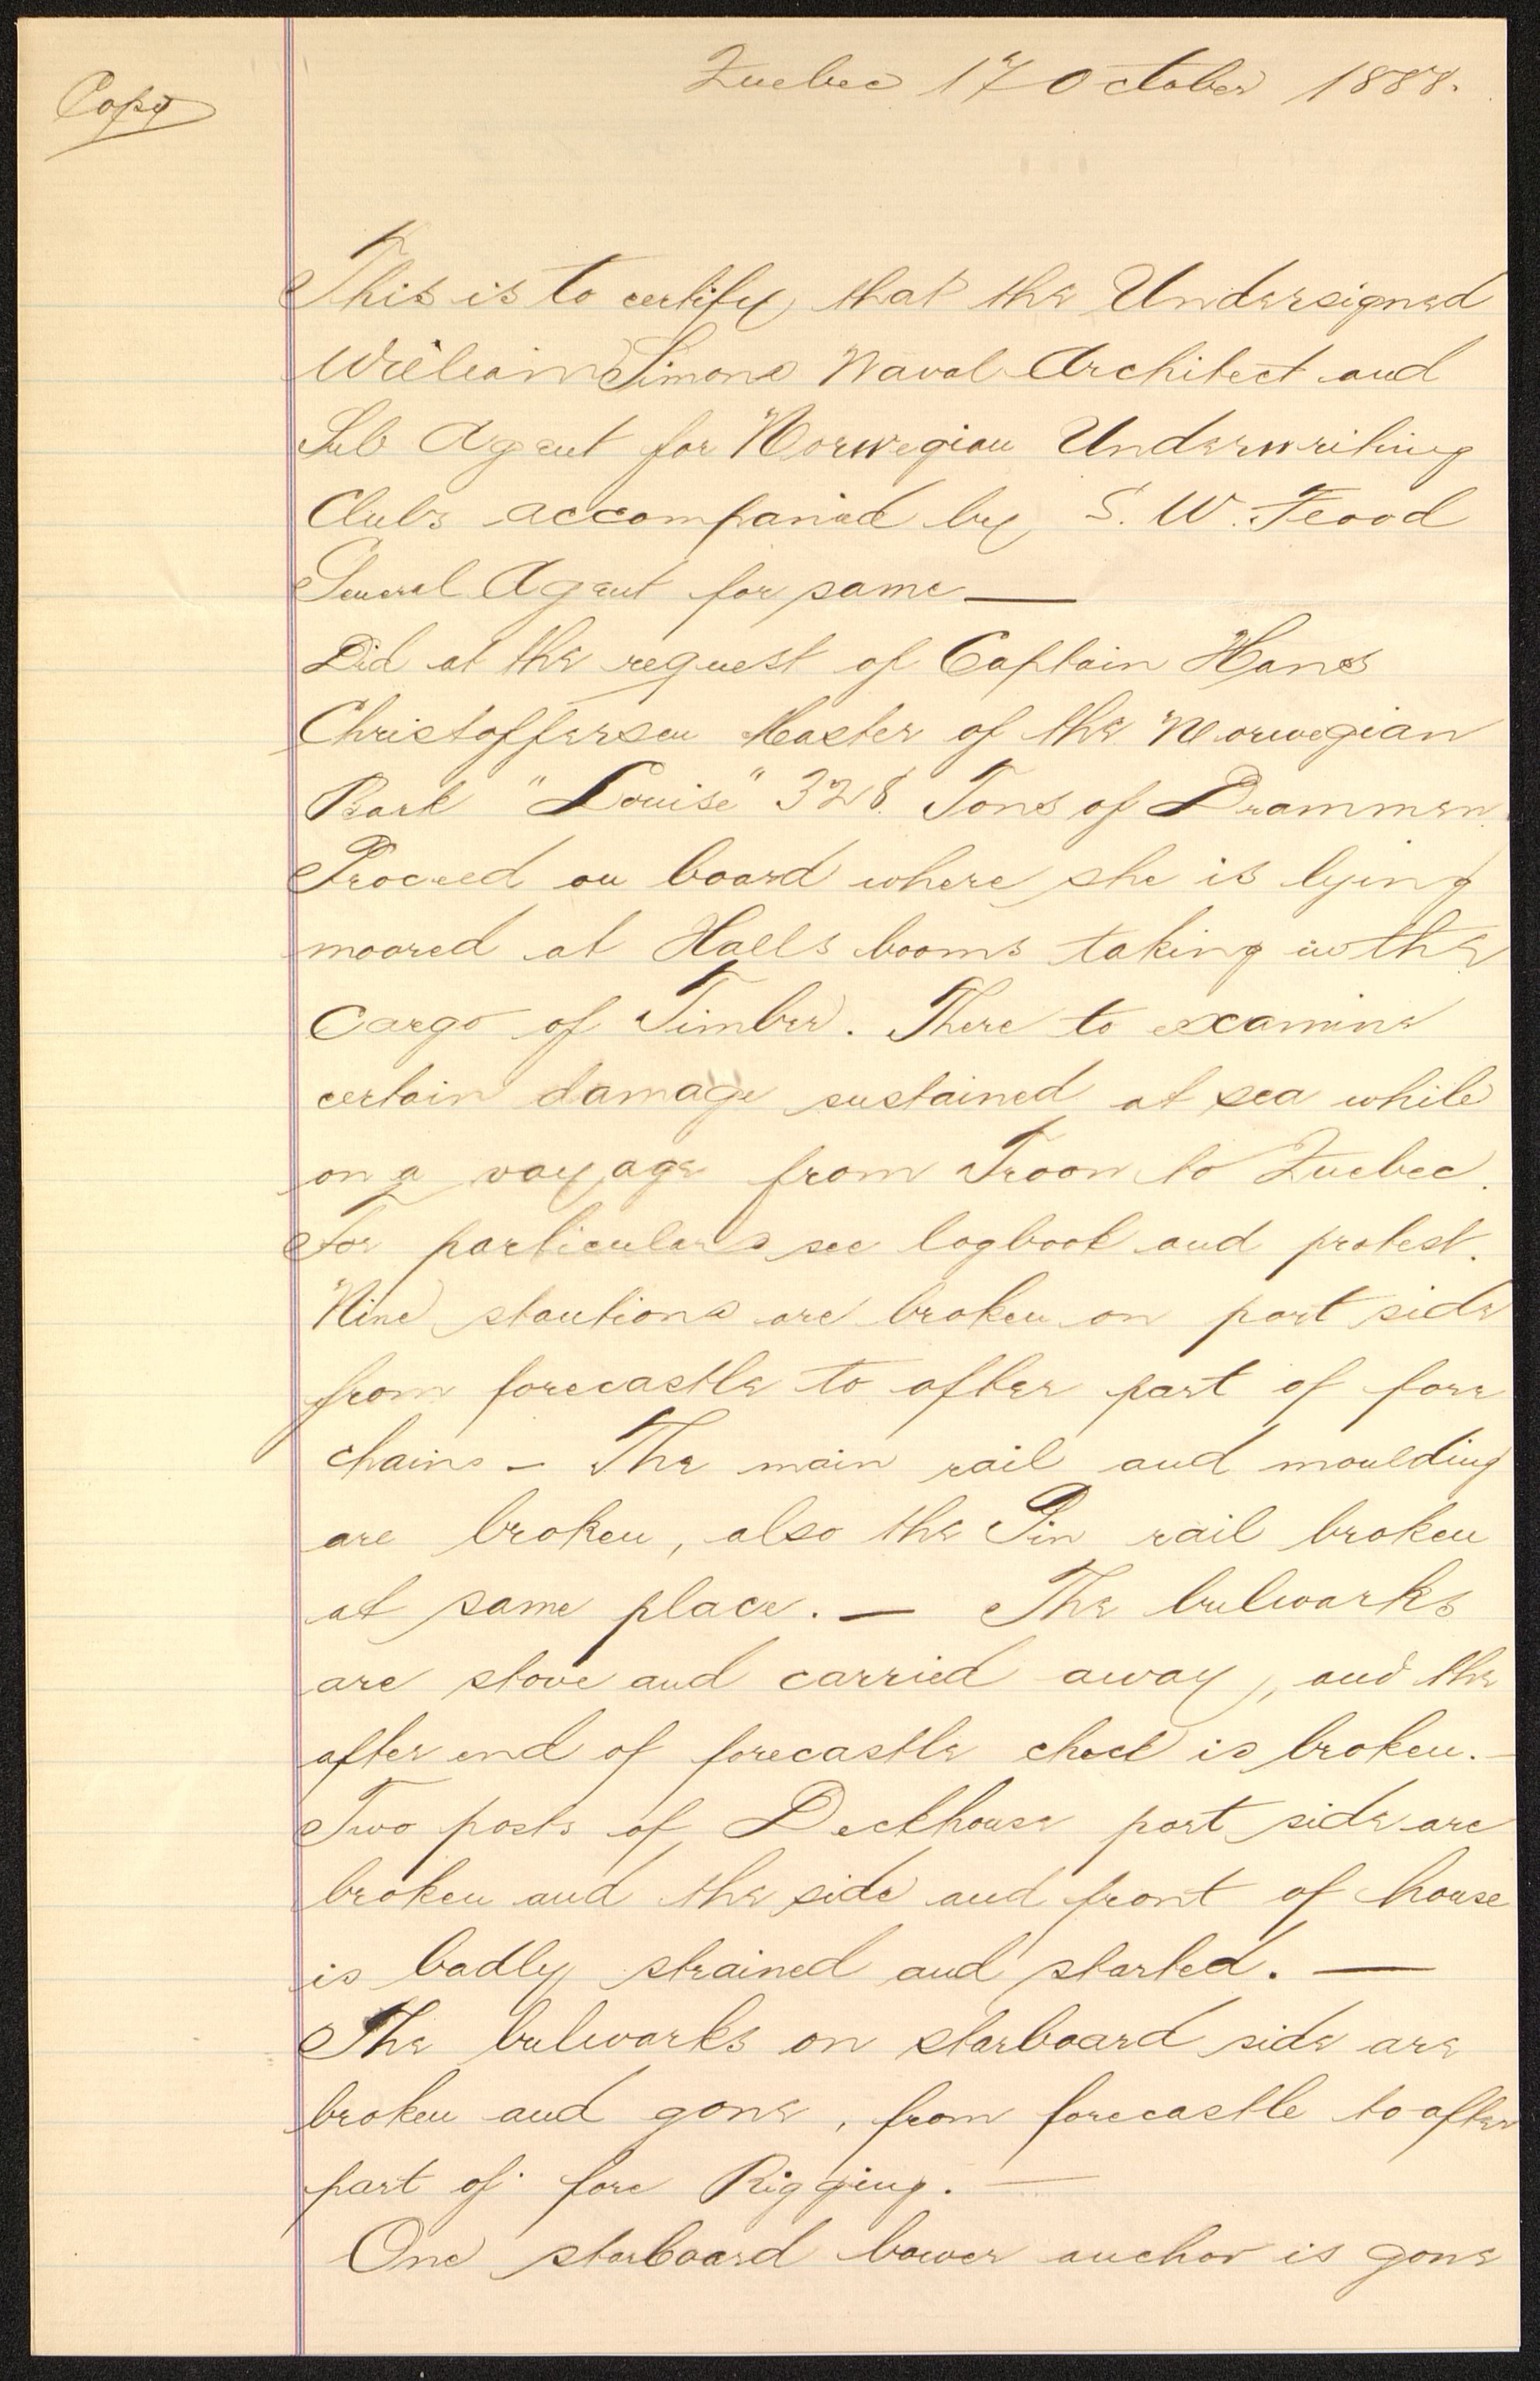 Quebec 17 October 1888.
Copy
This is to certify that the Undersigned
William Simons Naval Architect and
Sub Agent for Norwegian Underwriting
Clubs accompanied by S. W. Flood
General Agent for same —
Did at the request of Captain Hans
Christoffersen Master of the Norwegian
Bark "Louise" 328 Tons of Drammen
Proceed on board where she is lying
moored at Halls booms taking in the
Cargo of Timber. There to examine
certain damage sustained at sea while
on a voyage from Troon to Quebec.
For particulars see logbook and protest.
Nine stantions are broken on port side
from forecastle to after part of fore
chains - The main rail and moulding
are broken, also the Pin rail broken
at same place. — The bulwarks
are stove and carried away, and the
after end of forecastle chock is broken. -
Two posts of Deckhouse port side are
broken and the side and front of house
is badly strained and started. —
The bulwarks on starboard side are
broken and gone, from forecastle to after
part of fore Rigging. —
One starboard bower anchor is gone